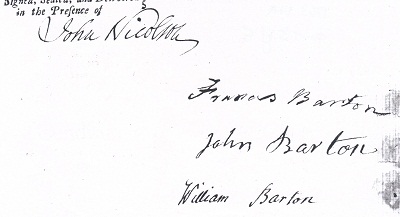 Signed, Sealed, and Delivered
in the Presence of
John Nicolson
Frances Barton
John Barton
William Barton